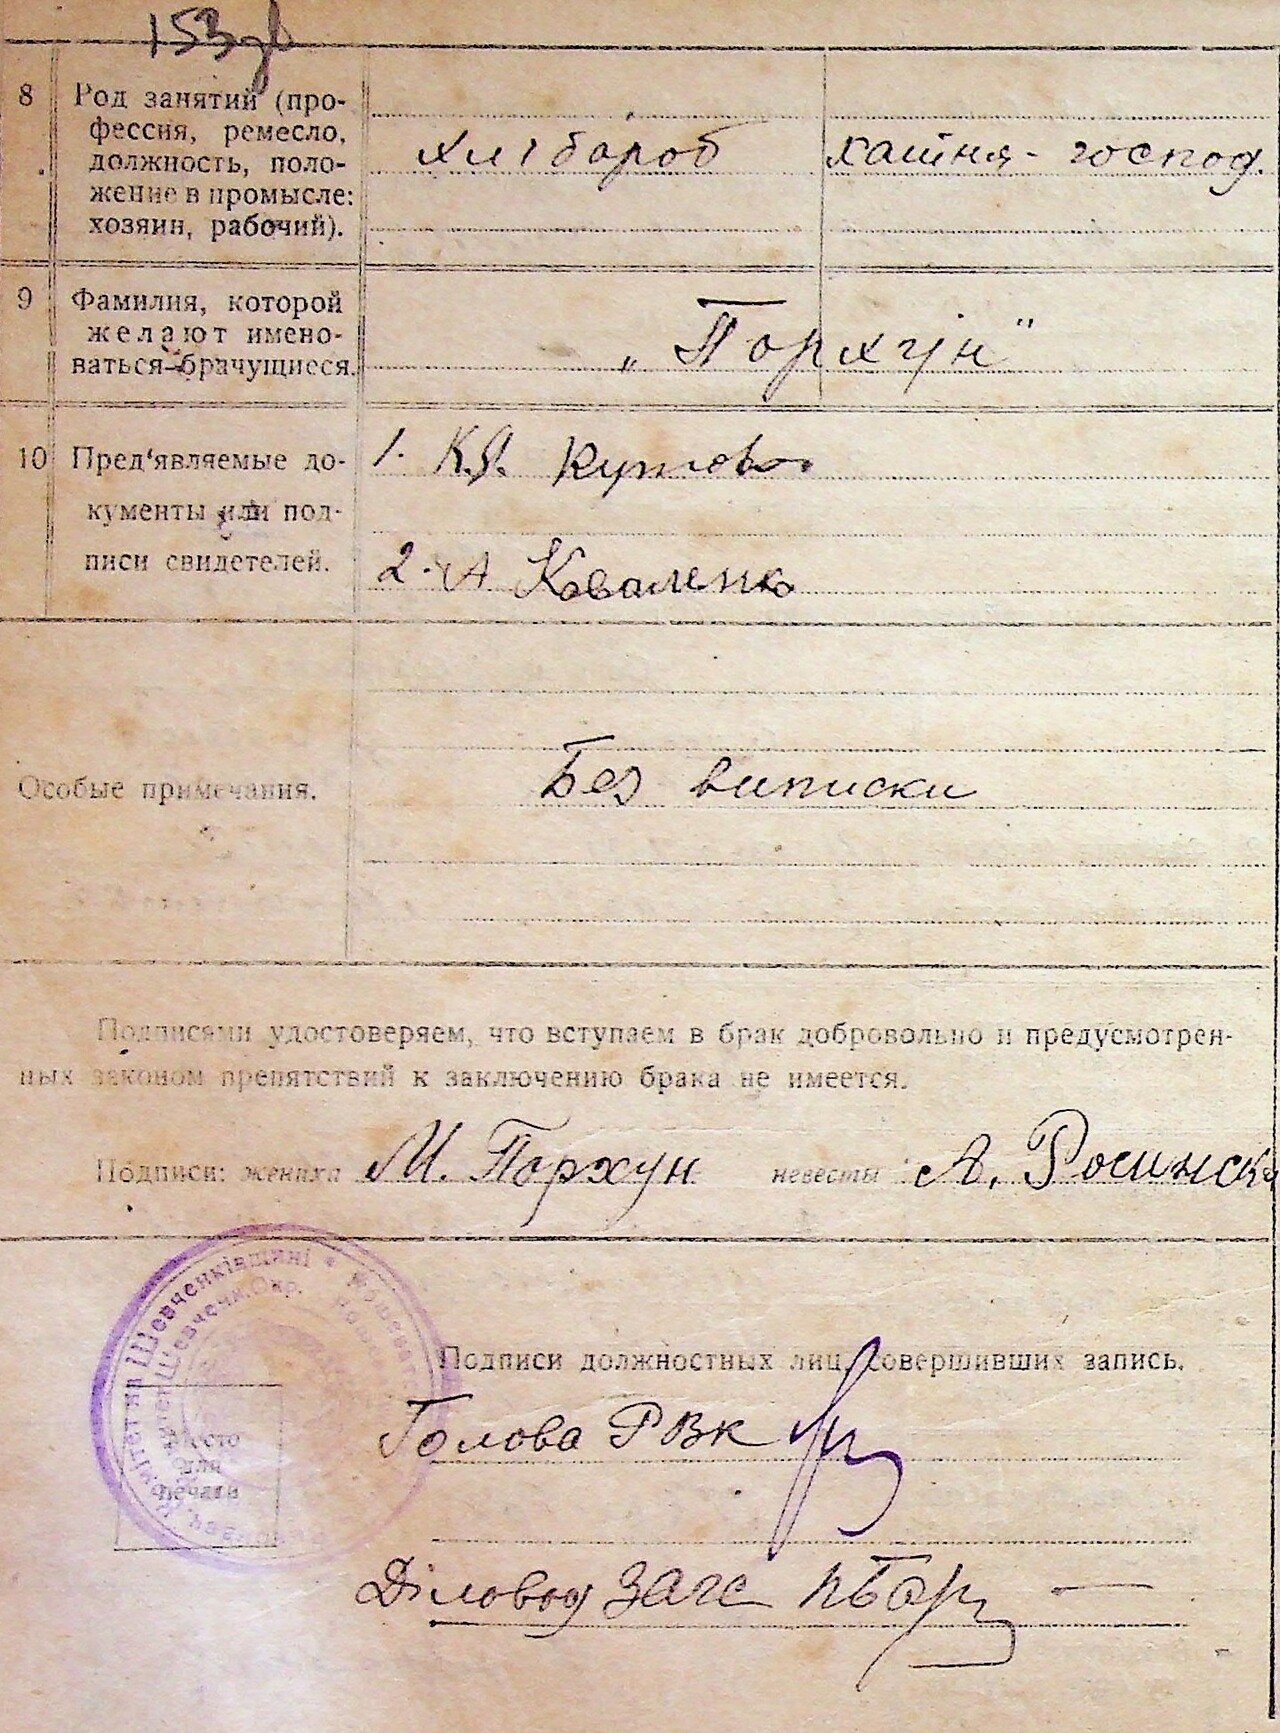 153
8 Род занятий (про-
фессия, ремесло,
должность, поло-
жение в промысле:
хозяин, рабочий).
хлібороб
хатня - господ.
9 Фамилия, которой
желают имено-
ваться брачущиеся.
„Порхун"
10 Пред'являемые до-
кументы или под-
писи свидетелей.
1. К.Я.
2. А Коваленко
Особые примечания.
Без виписки
Подписями удостоверяем, что вступаем в брак добровольно и предусмотрен-
ных законом препятствий к заключению брака не имеется.
Подписи: жениха М. Порхун невесты А. Росинска
Шевченківщині
Шевченк. Окр.
Место
для
печати
Подписи должностных лиц, совершивших запись.
Голова РВК
Діловод ЗАГС